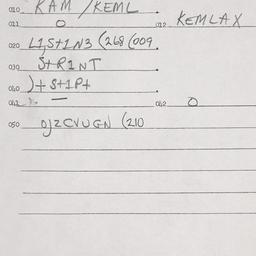 010 KAM /KEML .
011 O 012 KEMLAX
020 L1,S+1N3 (268 (009.
030 S+R1NT .
040 )+ S+1P+ .
041 — 042 O
050 0J2CVUGN (210